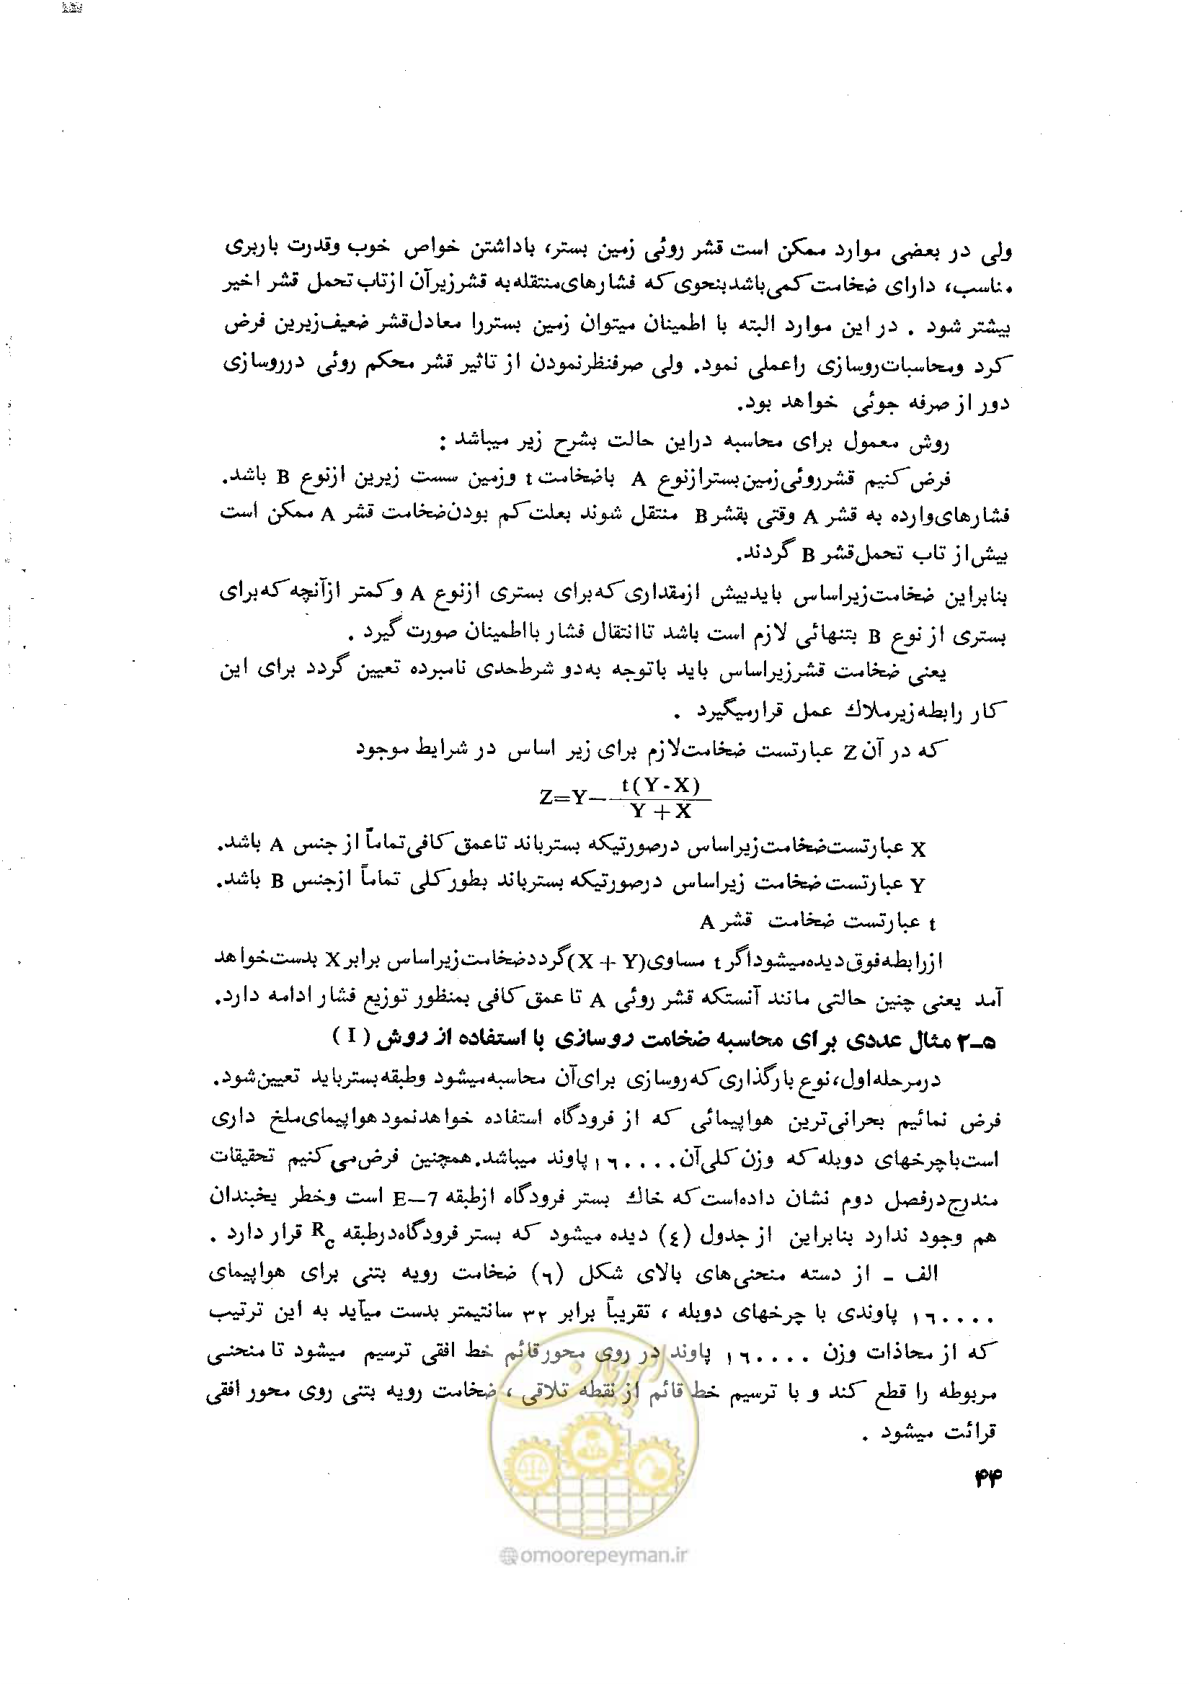 ولی در بعضی موارد ممکن است قشر روئی زمین بستر، باداشتن خواص خوب وقدرت باربری
مناسب، دارای ضخامت کمی باشد بنحوی که فشارهای منتقله به قشر زیر آن از تاب تحمل قشر اخیر
بیشتر شود . در این موارد البته با اطمینان میتوان زمین بستر را معادل قشر ضعیف زیرین فرض
کرد ومحاسبات روسازی راعملی نمود. ولی صرفنظر نمودن از تاثیر قشر محکم روئی درروسازی
دور از صرفه جوئی خواهد بود.
روش معمول برای محاسبه دراین حالت بشرح زیر میباشد :
فرض کنیم قشر روئی زمین بستر ازنوع A باضخامت t وزمین سست زیرین ازنوع B باشد.
فشارهای وارده به قشر A وقتی بقشر B منتقل شوند بعلت کم بودن ضخامت قشر A ممکن است
بیش از تاب تحمل قشر B گردند.
بنابراین ضخامت زیراساس باید بیش ازمقداری که برای بستری ازنوع A و کمتر ازآنچه که برای
بستری از نوع B بتنهائی لازم است باشد تاانتقال فشار بااطمینان صورت گیرد .
یعنی ضخامت قشر زیراساس باید باتوجه به دو شرط حدی نامبرده تعیین گردد برای این
کار رابطه زیر ملاك عمل قرارمیگیرد .
که در آن Z عبارتست ضخامت لازم برای زیر اساس در شرایط موجود
Z=Y— t(Y-X) / Y+X
X عبارتست ضخامت زیراساس درصورتیکه بسترباند تاعمق کافی تماماً از جنس A باشد.
Y عبارتست ضخامت زیراساس درصورتیکه بسترباند بطور کلی تماماً ازجنس B باشد.
t عبارتست ضخامت قشر A
ازرابطه فوق دیده میشود اگر t مساوی (X + Y) گردد ضخامت زیراساس برابر X بدست خواهد
آمد یعنی چنین حالتی مانند آنستکه قشر روئی A تا عمق کافی بمنظور توزیع فشار ادامه دارد.
۵-۲ مثال عددی برای محاسبه ضخامت روسازی با استفاده از روش ( I )
درمرحله اول، نوع بارگذاری که روسازی برای آن محاسبه میشود وطبقه بستر باید تعیین شود.
فرض نمائیم بحرانی ترین هواپیمائی که از فرودگاه استفاده خواهد نمود هواپیمای ملخ داری
است باچرخهای دوبله که وزن کلی آن ۱۶۰۰۰۰ پاوند میباشد. همچنین فرض می کنیم تحقیقات
مندرج درفصل دوم نشان داده است که خاك بستر فرودگاه ازطبقه E—7 است وخطر یخبندان
هم وجود ندارد بنابراین از جدول (٤) دیده میشود که بستر فرودگاه درطبقه Rc قرار دارد .
الف - از دسته منحنی های بالای شکل (٦) ضخامت رویه بتنی برای هواپیمای
۱۶۰۰۰۰ پاوندی با چرخهای دوبله ، تقریباً برابر ۳۲ سانتیمتر بدست میآید به این ترتیب
که از محاذات وزن ۱۶۰۰۰۰ پاوند در روی محور قائم خط افقی ترسیم میشود تا منحنی
مربوطه را قطع کند و با ترسیم خط قائم از نقطه تلاقی ، ضخامت رویه بتنی روی محور افقی
قرائت میشود .
۴۴
امور پیمان
@omoorepeyman.ir